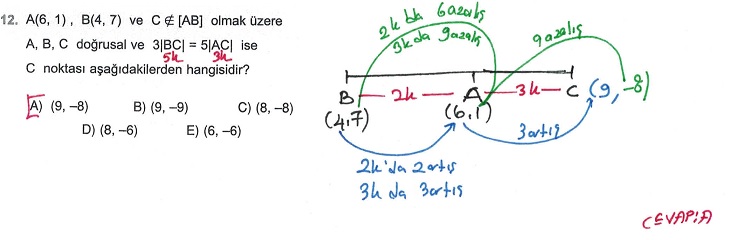 12. A(6, 1) , B(4, 7) ve C ∉ [AB] olmak üzere
A, B, C doğrusal ve 3|BC| = 5|AC| ise
5k 3k
C noktası aşağıdakilerden hangisidir?
A) (9, −8) B) (9, −9) C) (8, −8)
D) (8, −6) E) (6, −6)
2k'da 6 azalış
3k da 9 azalış
9 azalış
B 2k A 3k C (9, -8)
(4,7) (6,1)
3 artış
2k'da 2 artış
3k da 3 artış
CEVAP: A